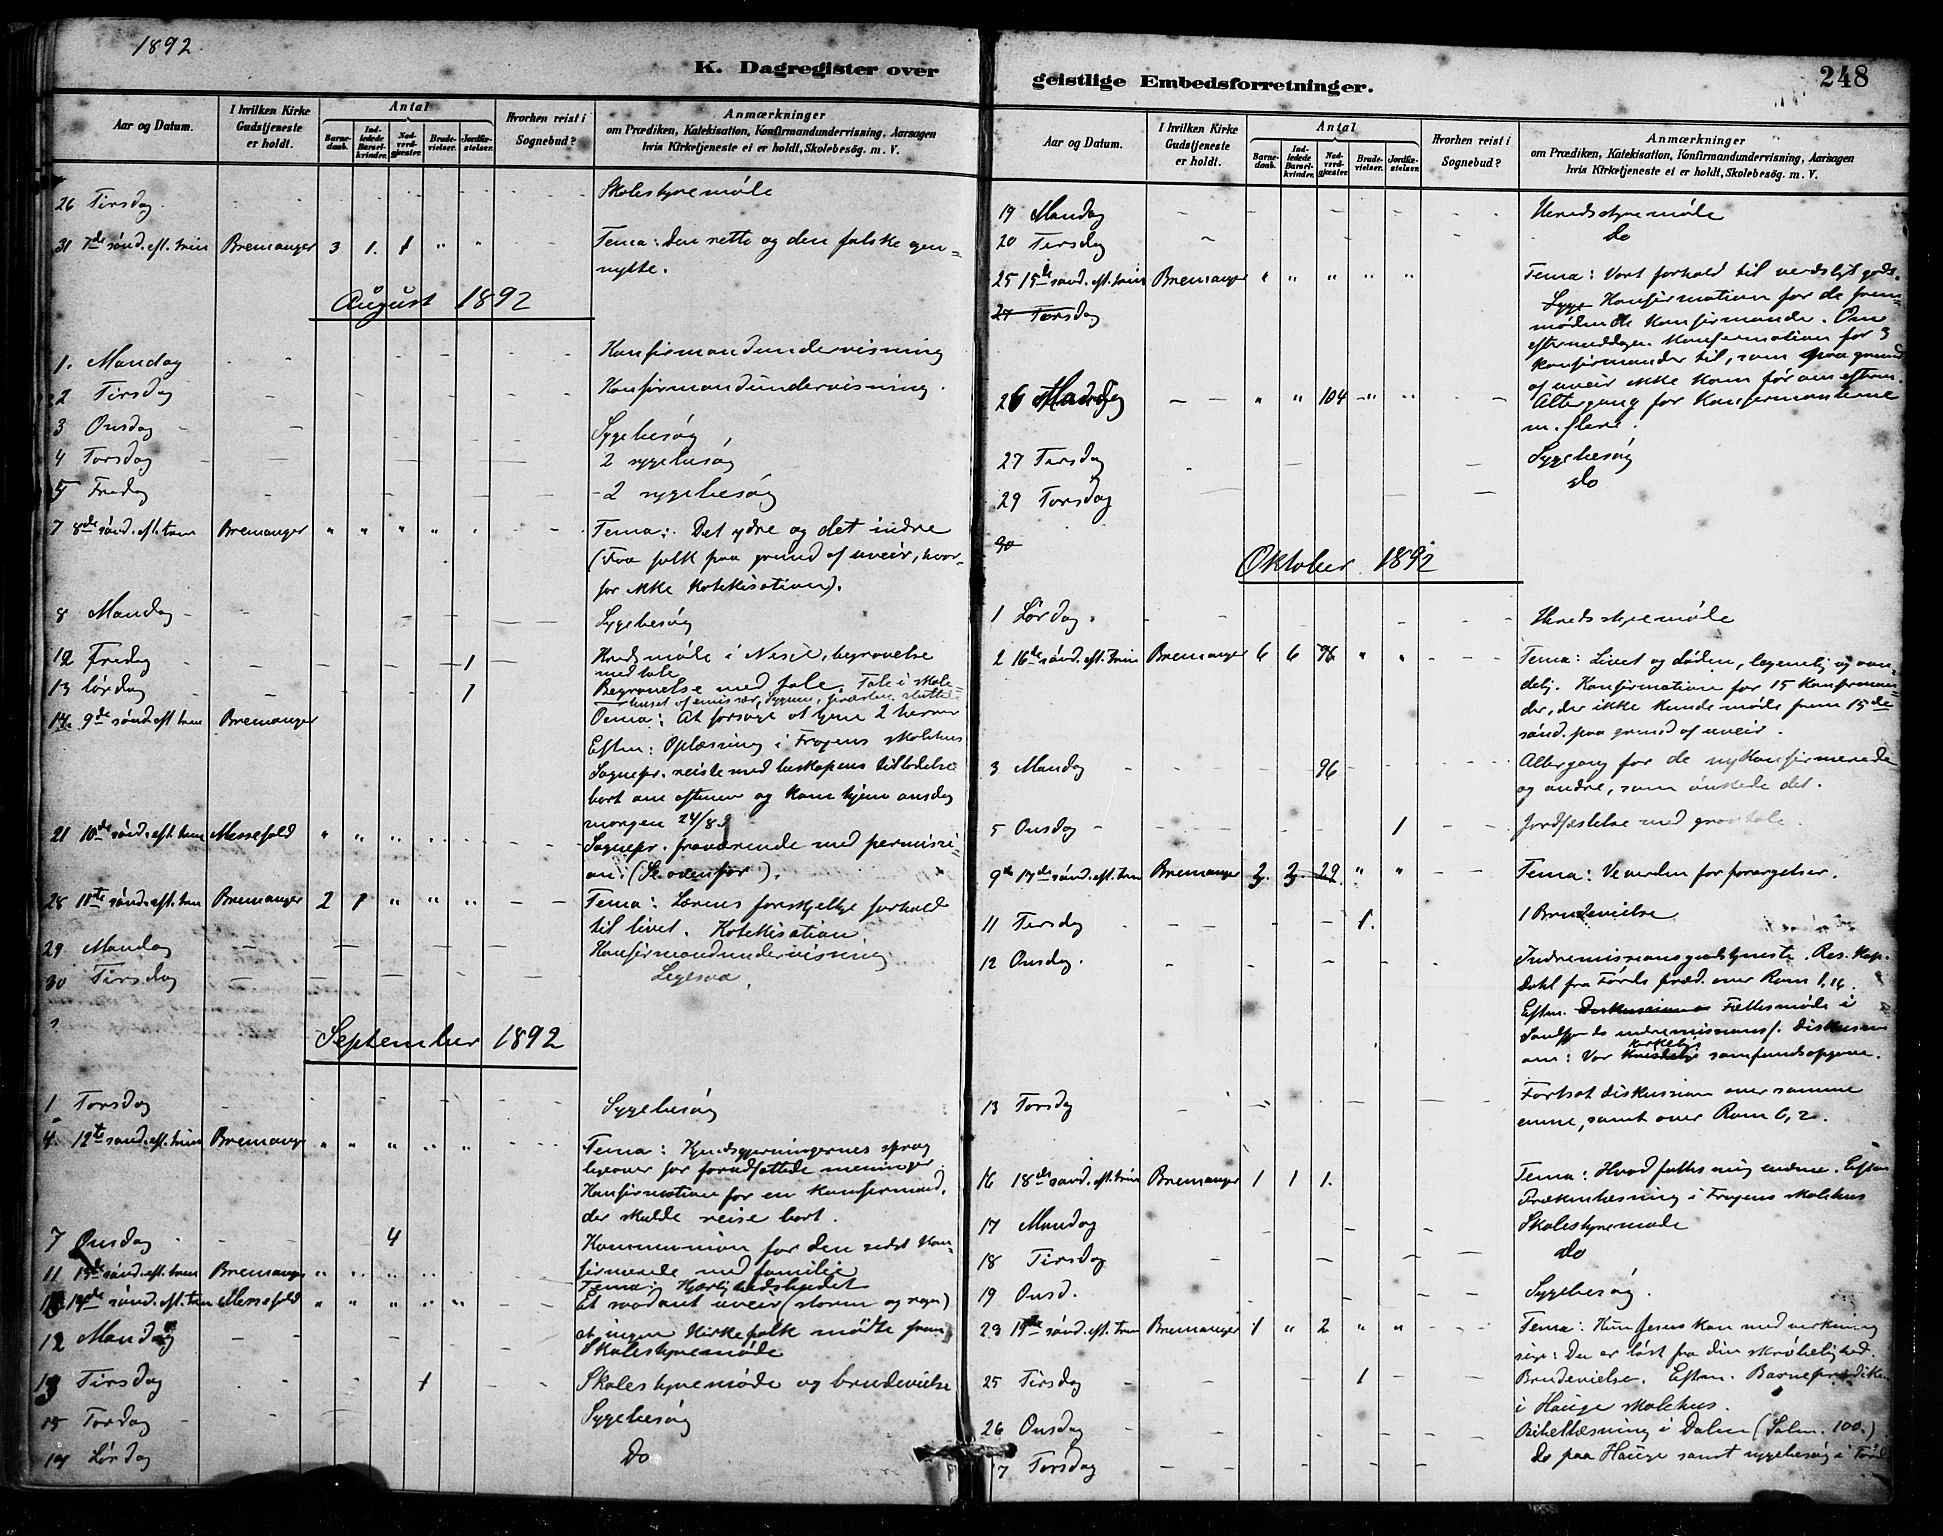 1892.
K. Dagregister over
Aar og Datum. | I hvilken Kirke Gudstjeneste er holdt. | Antal | Barnedaab. | Indledede Barselkvinder. | Nadverdgjæster. | Brudevielser. | Jordfæstelser. | Hvorhen reist i Sognebud? | Anmærkninger om Prædiken, Katekisation, Konfirmandundervisning, Aarsagen hvis Kirketjeneste ei er holdt, Skolebesøg. m. V.
26 Tirsdag. Skolestyremøte
31 7de sønd. eft. trin Bremanger 3 1. 1 " " Tema: Den rette og den falske egen=
nytte.
August 1892
1. Mandag Konfirmandundervisning
2 Tirsdag Konfirmandundervisning.
3 Onsdag Sygebesøg
4 Torsdag 2 sygebesøg
5 Fredag 2 sygebesøg
7 8de sønd. eft. trin Bremanger " " " " " Tema: Det ydre og det indre
(Faa folk paa grund af uveir, hvor-
for ikke Katekisation).
8 Mandag Sygebesøg
12 Fredag 1 møte i begravelse
med tale
13 Lørdag 1 Begravelse med tale. Tale i skole=
huset af emissær
14. 9de sønd. eft. trin Bremanger Tema: At forsøge at tjene 2 herrer
Eftm: Oplæsning i Frøyens skolehus
Sognepr. reiste med biskopens tilladelse
bort om aftenen og kom hjem onsdag
morgen 24/8
21 10de sønd. eft. trin Messefold " " " " " Sognepr. fraværende med permissi-
on. (Se ovenfor).
28 11te sønd. eft. trin Bremanger 2 1 " " " Tema: Lærens forskjellige forhold
til livet. Katekisation
29 Mandag Konfirmandundervisning
30 Tirsdag Ligesaa.
September 1892
1 Torsdag Sygebesøg
4. 12te sønd. eft. trin Bremanger " " " " " Tema: Kjendsgjerningernes sprog
ligeover for forudfattede meninger
Konfirmation for en konfirmand,
der skulde reise bort.
7 Onsdag 4 Kommunion for den sidst kon-
firmerede med familie
11 13de sønd. eft. trin Bremanger " " " " Tema: Kjærlighedsbudet
14de sønd. eft. trin Messefold " " " " " Et saadant uveir (storm og regn)
at ingen kirkefolk mødte frem
12 Mandag Skolestyremøde
13 Tirsdag 1 Skolestyremøde og brudevielse
15 Tordag Sygebesøg
Lørdag Do
geistlige Embedsforretninger.
248
Aar og Datum. | I hvilken Kirke Gudstjeneste er holdt. | Antal | Barnedaab. | Indledede Barselkvinder. | Nadverdgjæster. | Brudevielser. | Jordfæstelser. | Hvorhen reist i Sognebud? | Anmærkninger om Prædiken, Katekisation, Konfirmandundervisning, Aarsagen hvis Kirketjeneste ei er holdt, Skolebesøg. m. V.
19 Mandag Heredsstyremøte
20 Tirsdag Do
25 15de sønd. eft. trin Bremanger " " " " " Tema: Vort forhold til verdsligt gods.
27 Torsdag Syge Konfirmation for de frem=
mødende konfirmander. Om
eftermiddagen konfirmation for 3
konfirmander til, som paa grund
af uveir ikke kom før om efterm.
26 Mandag " " 104 " " Altergang for konfirmanterne
m. flere.
27 Tirsdag Sygebesøg
29 Torsdag Do
30
Oktober 1892
1 Lørdag. Heredsstyremøte
2 16de sønd. eft. trin Bremanger 6 6 96 " " Tema: Livet og døden, legemlig og aan-
delig. Konfirmation for 15 konfirman-
der, der ikke kunde møde frem 15de
sønd. paa grund af uveir.
3 Mandag 96 Altergang for de nykonfirmerede
og andre, som ønskede det.
5 Onsdag 1 Jordfæstelse med gravtale.
9de 17de sønd. eft. trin Bremanger 3. 3. 29 " " Tema: Ve verden for forargelser.
11 Tirsdag 1. 1 Brudevielse
12 Onsdag. Indremissionsgudstjeneste. Res. Kap.
Dahl fra Førde præd. over Rom 1,16.
Eftm. Diskussion Fællesmøde i
indremissionsf. diskussion
om: Vor kirkelige samfundsopgave.
13 Torsdag Fortsat diskussion over samme
emne, samt over Rom 6,2.
16 18de sønd. eft. trin Bremanger 1 1 1. Tema: Eftm
Prækenlæsning i Frøyens skolehus
17 Mandag Skolestyremøde
18 Tirsdag Do
19 Onsd. Sygebesøg.
23 19de sønd. eft. trin Bremanger 1 " 2 " " Tema: Kun Jesus kan med virkning
sige: Du er løst fra din skrøbelighed.
25 Tirsdag 1 Brudevielse. Eftm. Barnepræken
i Hauge skolehus.
26 Onsdag Bibellæsning i Dalen (Salm. 100.)
Torsdag Do paa Hauge samt sygebesøg i